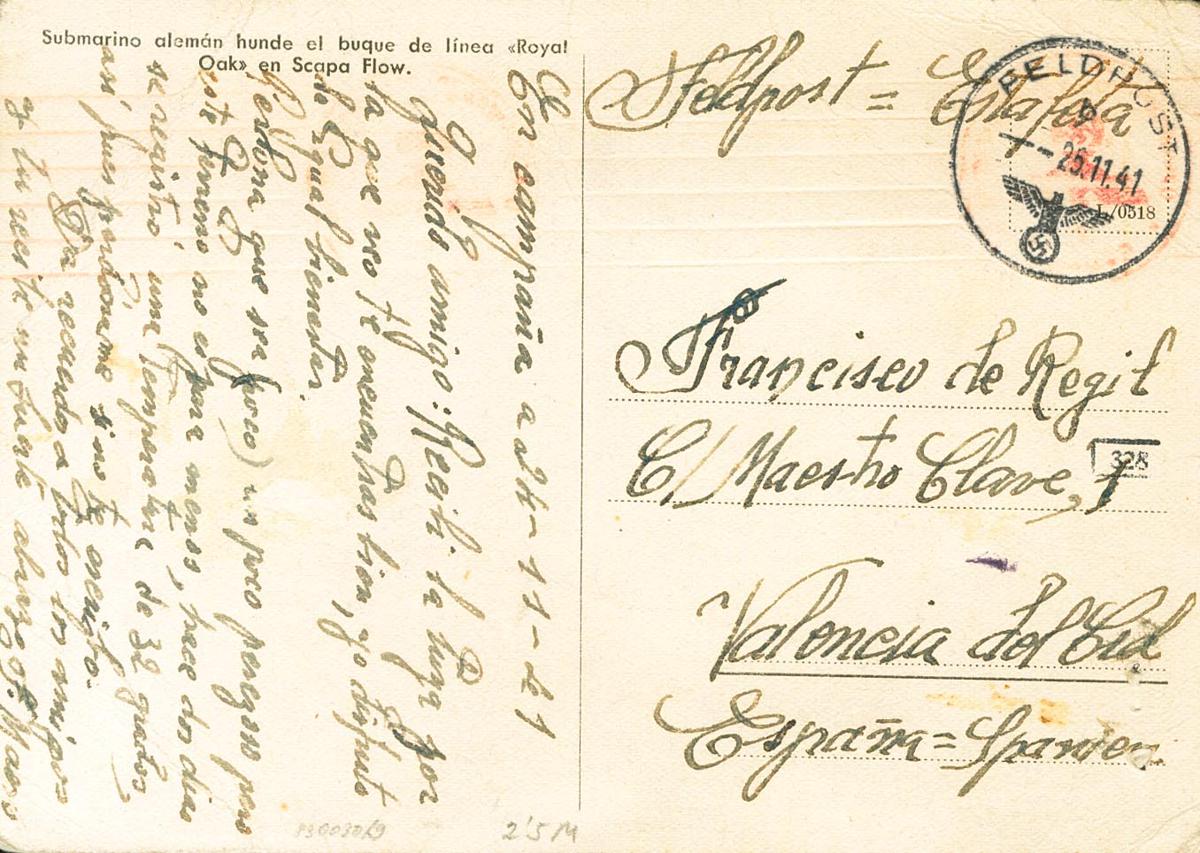 Submarino alemán hunde el buque de línea «Royal
Oak» en Scapa Flow.
En campaña a 24-11-41
Querido amigo: Recibi la tuya por
la que veo te encuentras bien, yo disfruto
de igual bienestar.
Perdona que sea (poco) un poco perezoso pero
este terreno no es para menos, hace dos dias
se registró una temperatura de 32 grados
asi pues perdoname si no te escribo.
Da recuerdos a todos los amigos
y tu recibe un fuerte abrazo
Feldpost = Estafeta
FELDPOST
b
--25.11.41
L/0518
Francisco de Regil
C/ Maestro Clave, 1
328
Valencia del Cid
España = Spanien
83003019
2'5 M